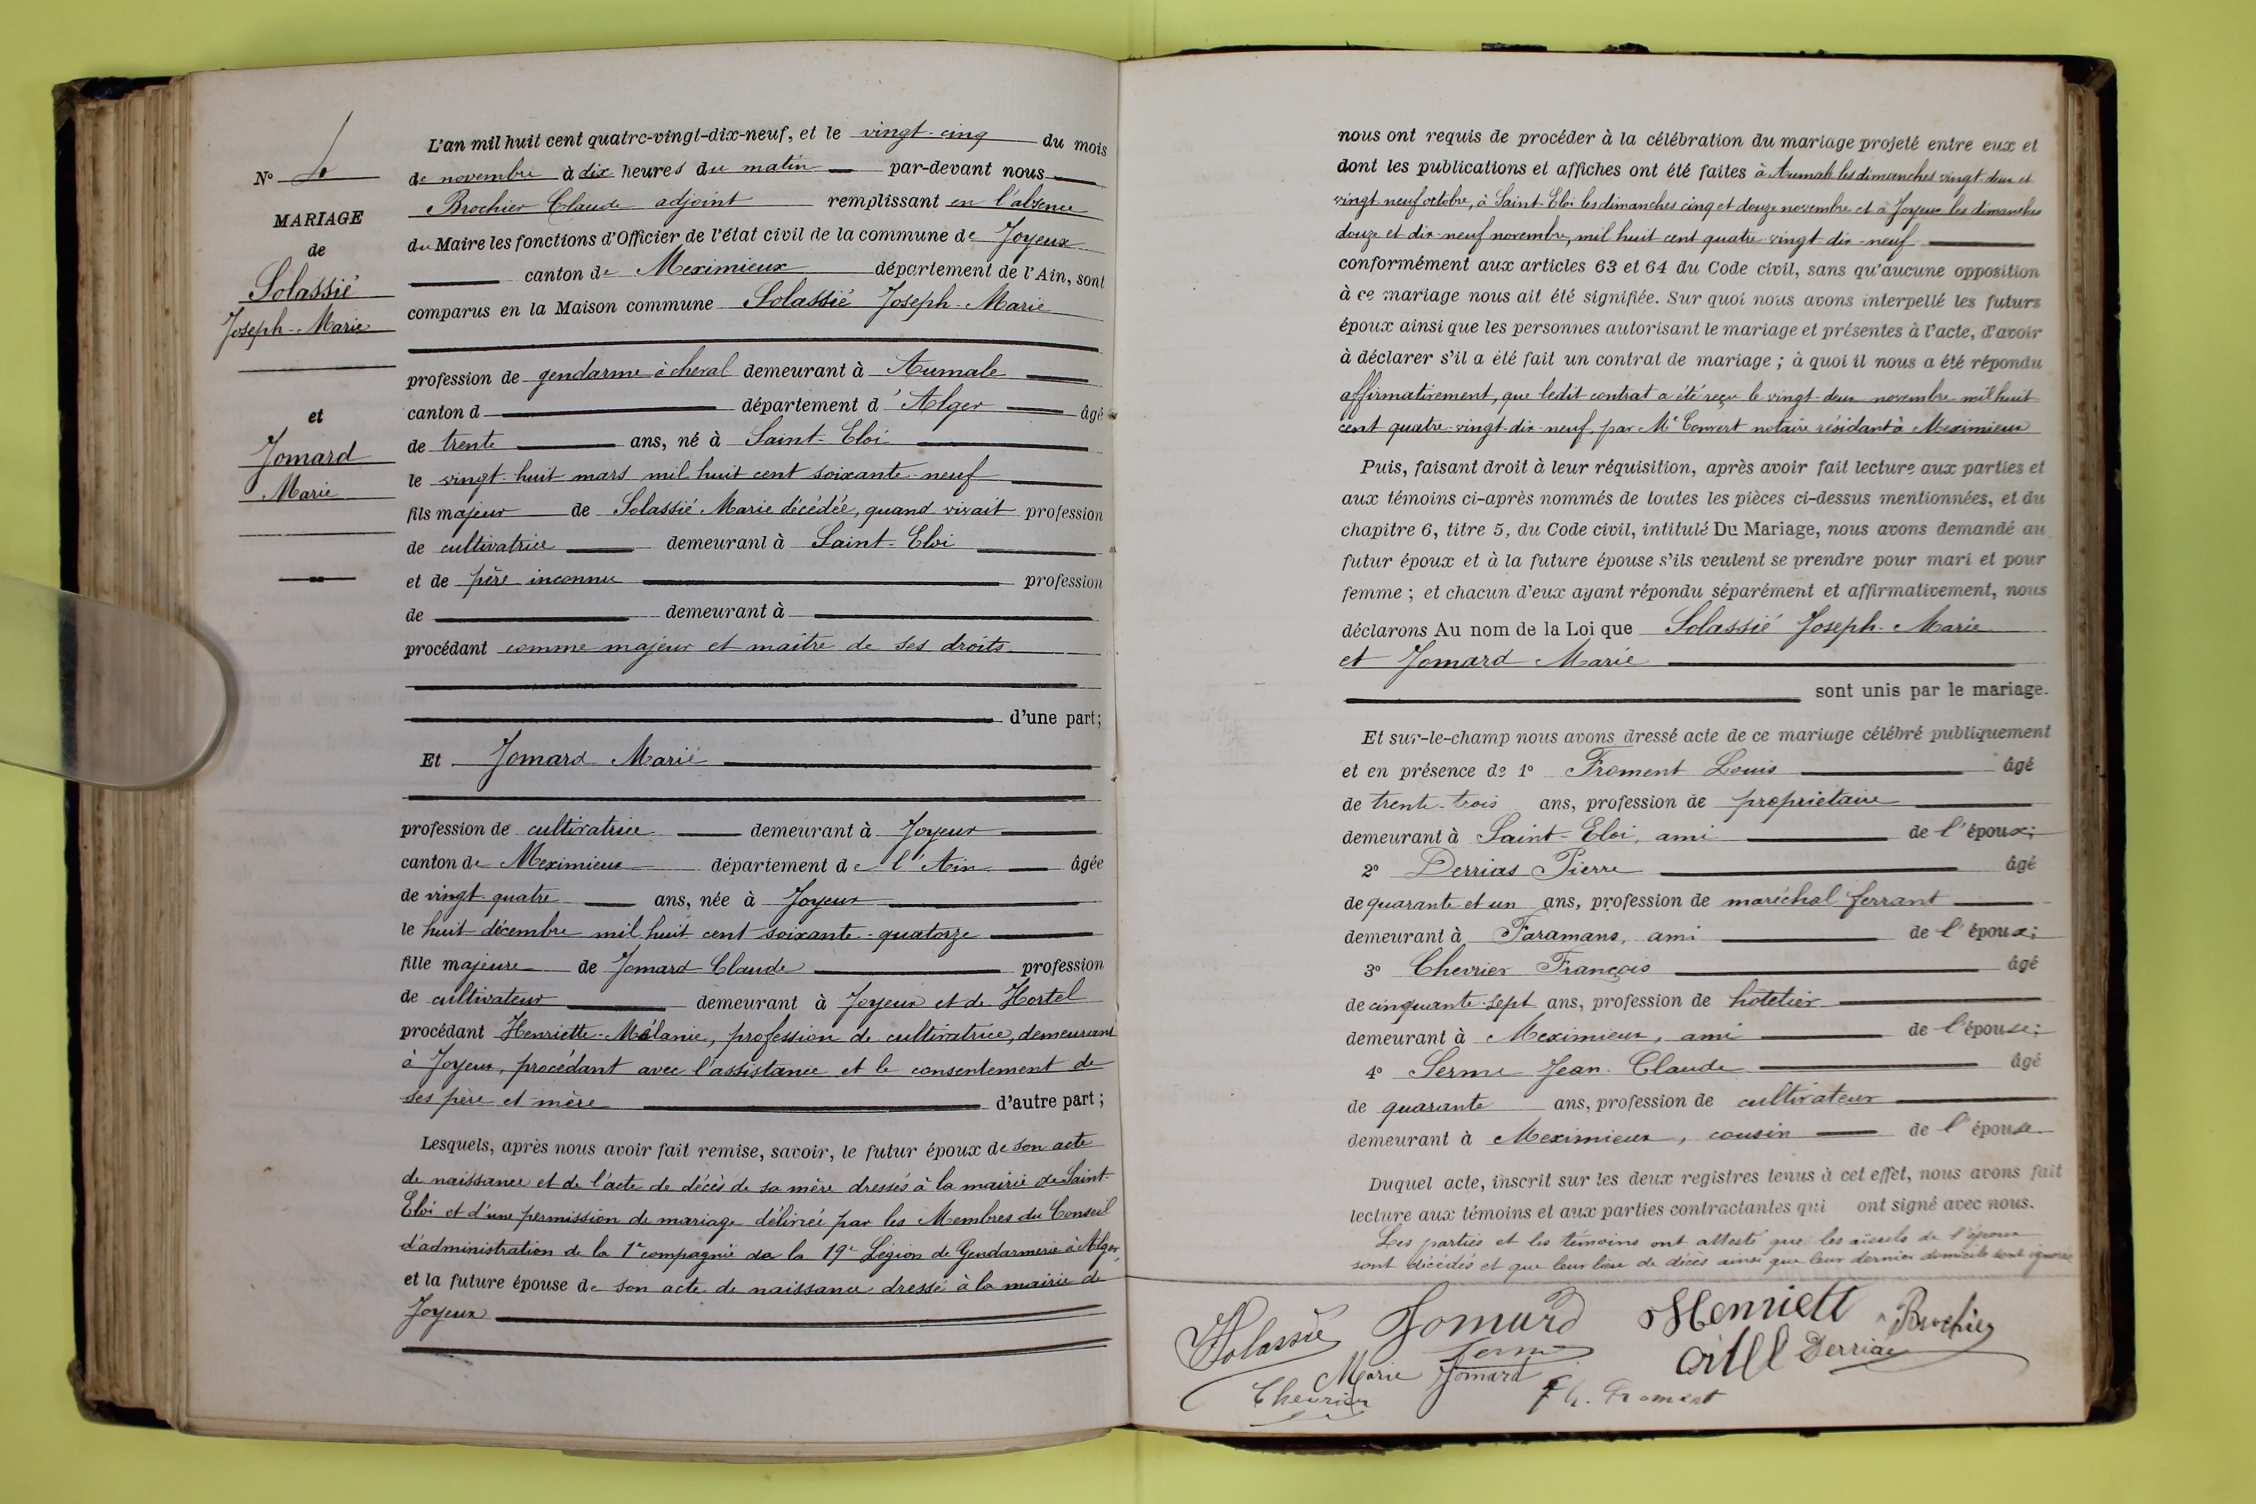 N° 6
MARIAGE
de
Solassié
Joseph-Marie
et
Jomard
Marie
L'an mil huit cent quatre-vingt-dix-neuf, et le vingt-cinq du mois
de novembre à dix heures du matin par-devant nous
Brochier Claude adjoint remplissant en l'absence
du Maire les fonctions d'Officier de l'état civil de la commune de Joyeux
canton de Meximieux département de l'Ain, sont
comparus en la Maison commune Solassié Joseph-Marie
profession de gendarme à cheval demeurant à Aumale
canton d département d'Alger âgé
de trente ans, né à Saint-Eloi
le vingt-huit mars mil huit cent soixante-neuf
fils majeur de Solassié Marie décédée, quand vivait profession
de cultivatrice demeurant à Saint-Eloi
et de père inconnu profession
de demeurant à
procédant comme majeur et maître de ses droits
d'une part;
Et Jomard Marie
profession de cultivatrice demeurant à Joyeux
canton de Meximieux département de l'Ain âgée
de vingt-quatre ans, née à Joyeux
le huit décembre mil huit cent soixante-quatorze
fille majeure de Jomard Claude profession
de cultivateur demeurant à Joyeux et de Hortel
procédant Henriette-Mélanie, profession de cultivatrice, demeurant
à Joyeux, procédant avec l'assistance et le consentement de
ses père et mère d'autre part;
Lesquels, après nous avoir fait remise, savoir, le futur époux de son acte
de naissance et de l'acte de décès de sa mère dressés à la mairie de Saint-
Eloi et d'une permission de mariage délivrée par les Membres du Conseil
d'administration de la 1e compagnie de la 19e Légion de Gendarmerie à Alger,
et la future épouse de son acte de naissance dressé à la mairie de
Joyeux
nous ont requis de procéder à la célébration du mariage projeté entre eux et
dont les publications et affiches ont été faites à Aumale les dimanches vingt-deux et
vingt-neuf octobre, à Saint-Eloi les dimanches cinq et douze novembre et à Joyeux les dimanches
douze et dix-neuf novembre, mil huit cent quatre-vingt-dix-neuf
conformément aux articles 63 et 64 du Code civil, sans qu'aucune opposition
à ce mariage nous ait été signifiée. Sur quoi nous avons interpellé les futurs
époux ainsi que les personnes autorisant le mariage et présentes à l'acte, d'avoir
à déclarer s'il a été fait un contrat de mariage; à quoi il nous a été répondu
affirmativement, que ledit contrat a été reçu le vingt-deux novembre mil huit
cent quatre-vingt-dix-neuf, par Me Convert notaire résidant à Meximieux
Puis, faisant droit à leur réquisition, après avoir fait lecture aux parties et
aux témoins ci-après nommés de toutes les pièces ci-dessus mentionnées, et du
chapitre 6, titre 5, du Code civil, intitulé Du Mariage, nous avons demandé au
futur époux et à la future épouse s'ils veulent se prendre pour mari et pour
femme; et chacun d'eux ayant répondu séparément et affirmativement, nous
déclarons Au nom de la Loi que Solassié Joseph-Marie
et Jomard Marie
sont unis par le mariage.
Et sur-le-champ nous avons dressé acte de ce mariage célébré publiquement
et en présence de 1° Froment Louis âgé
de trente-trois ans, profession de propriétaire
demeurant à Saint-Eloi, ami de l'époux;
2° Derrias Pierre âgé
de quarante et un ans, profession de maréchal ferrant
demeurant à Faramans, ami de l'époux;
3° Chevrier François âgé
de cinquante-sept ans, profession de hôtelier
demeurant à Meximieux, ami de l'épouse;
4° Serme Jean-Claude âgé
de quarante ans, profession de cultivateur
demeurant à Meximieux, cousin de l'épouse
Duquel acte, inscrit sur les deux registres tenus à cet effet, nous avons fait
lecture aux témoins et aux parties contractantes qui ont signé avec nous.
Les parties et les témoins ont attesté que les aïeuls de l'époux
sont décédés et que leur lieu de décès ainsi que leur dernier domicile sont ignorés
Solassié Jomard Henriett Brochier
Serme ortel Derrias
Marie Jomard
Chevrier Froment